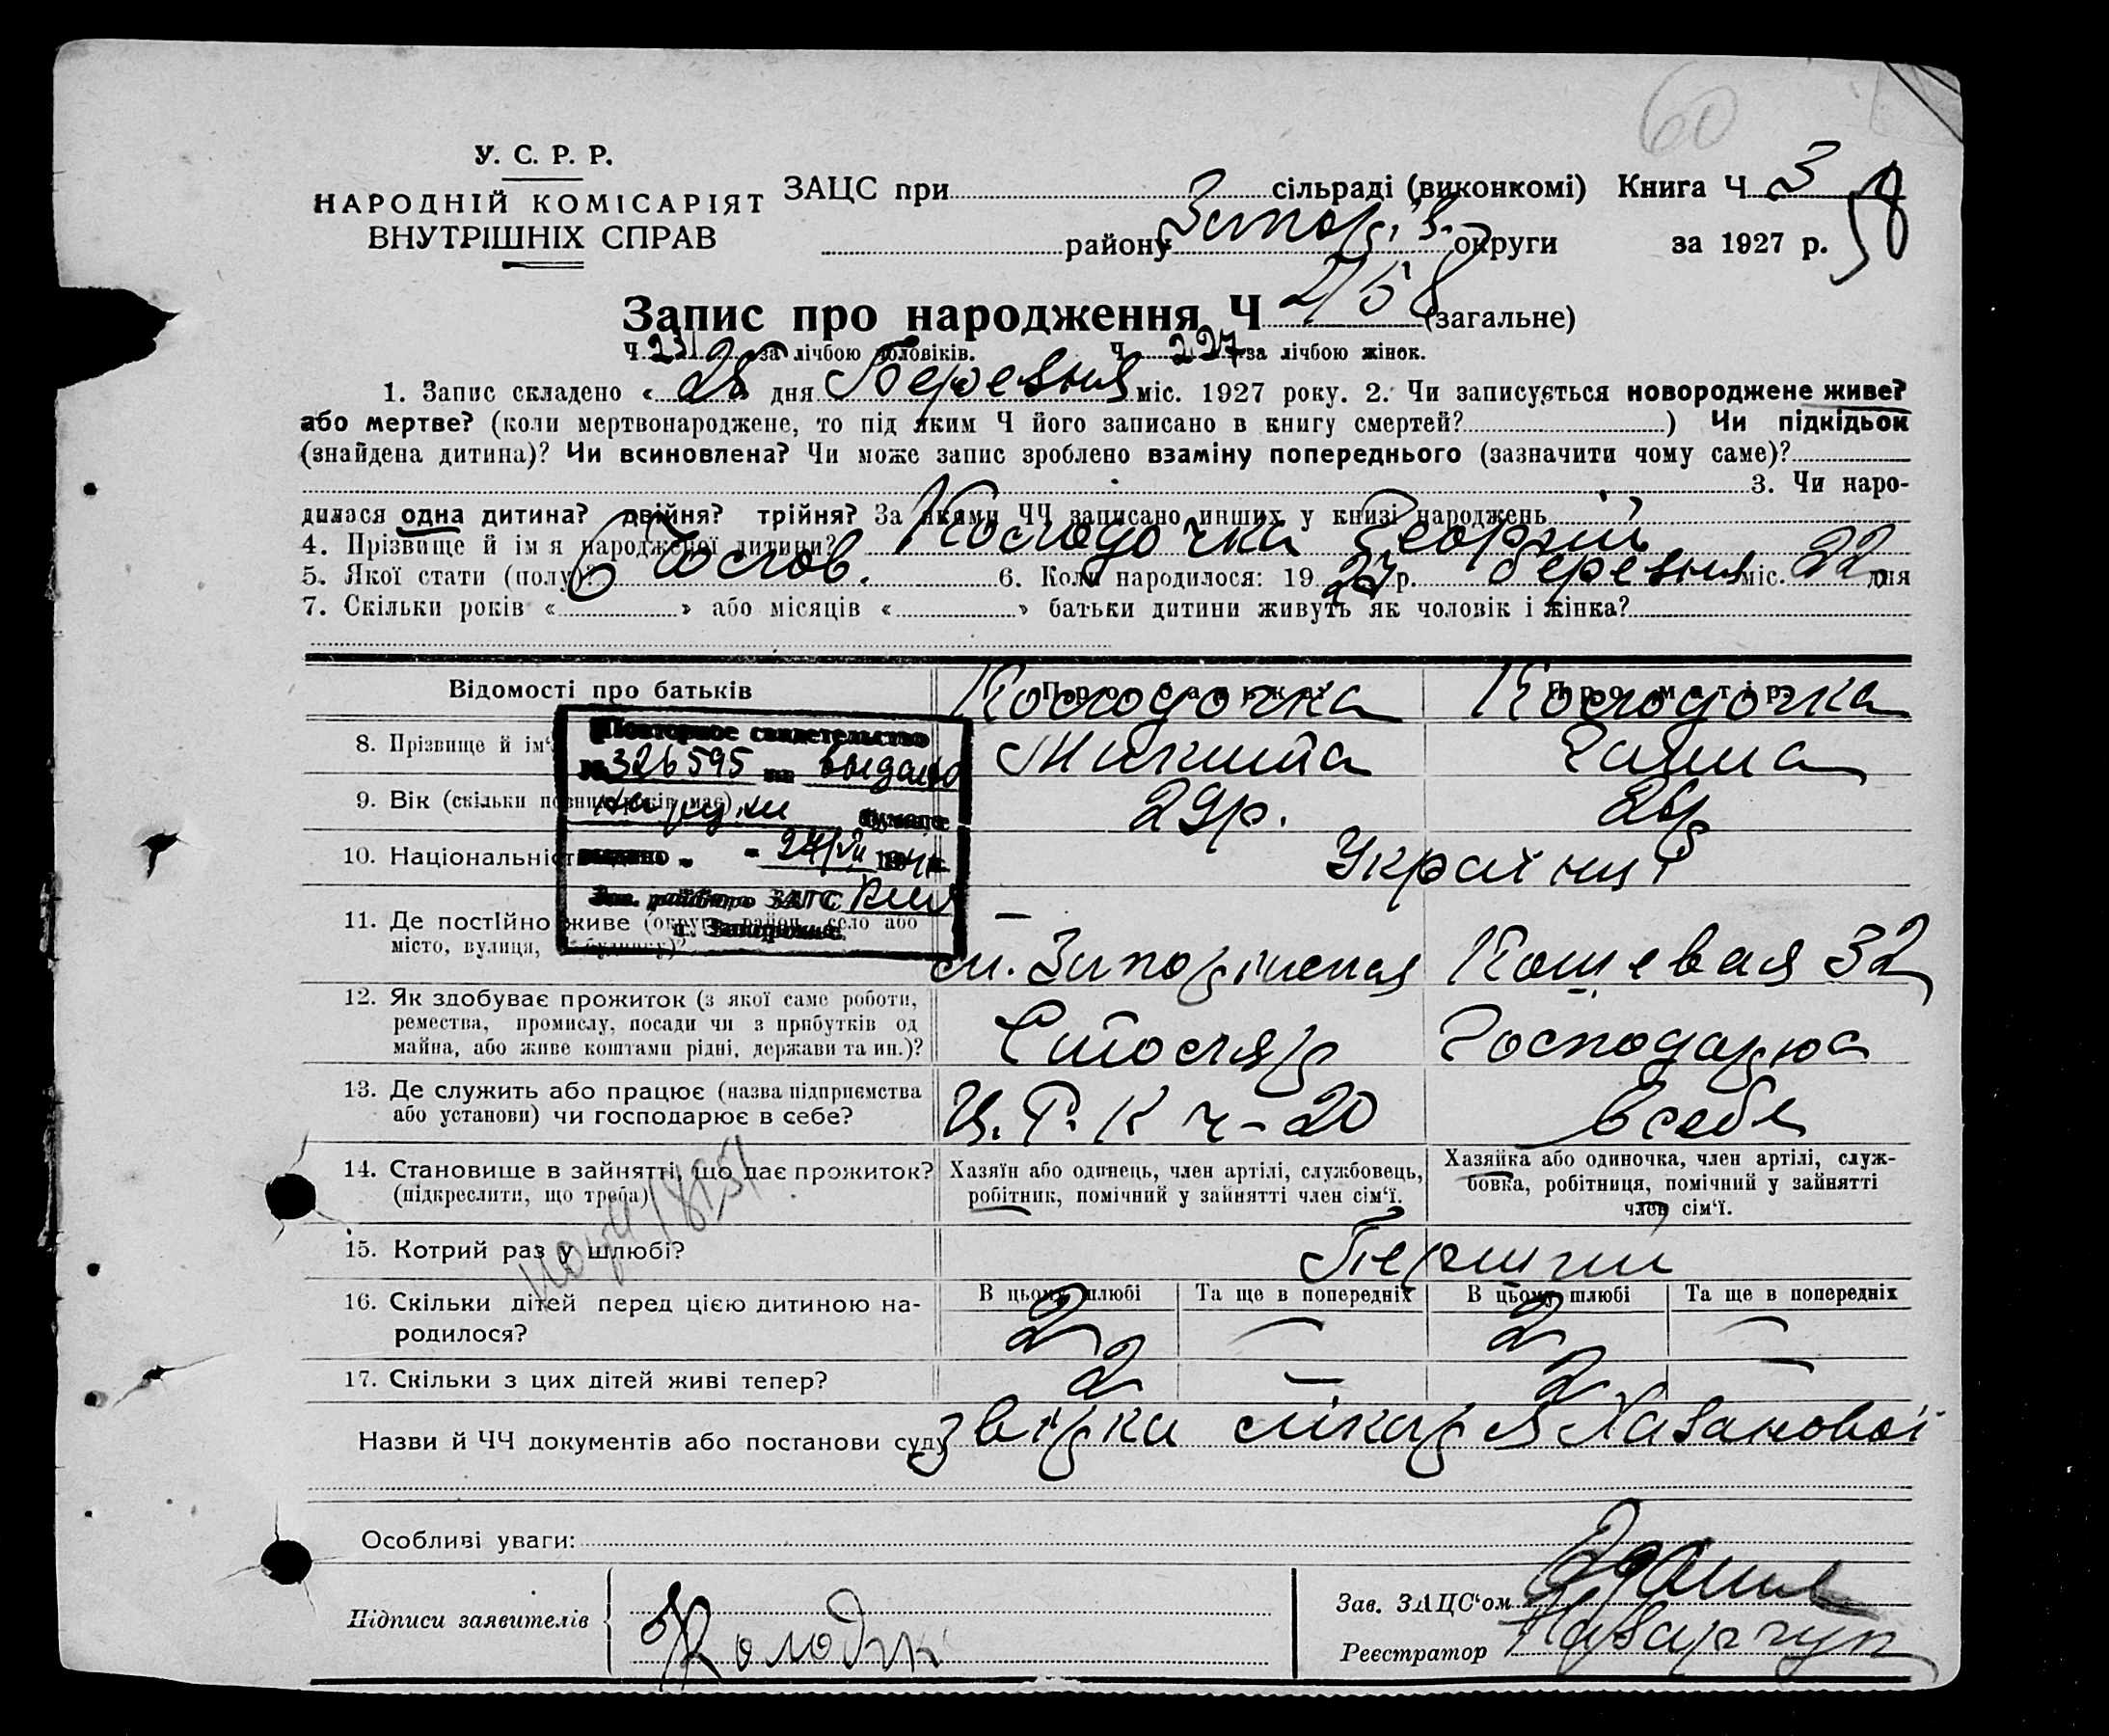 60
У. С. Р. Р.
НАРОДНІЙ КОМІСАРІЯТ
ВНУТРІШНІХ СПРАВ
ЗАЦС при сільраді (виконкомі) Книга Ч 3
району Запоріз. округи за 1927 р. 58
Запис про народження Ч 458 (загальне)
Ч 231 за лічбою чоловіків. Ч 227 за лічбою жінок.
1. Запис складено « 28 дня Березня міс. 1927 року. 2. Чи записується новороджене живе?
або мертве? (коли мертвонароджене, то під яким Ч його записано в книгу смертей? ) Чи підкідьок
(знайдена дитина)? Чи всиновлена? Чи може запис зроблено взаміну попереднього (зазначити чому саме)?
3. Чи наро-
дилася одна дитина? двійня? трійня? За якими ЧЧ записано инших у книзі народжень
4. Прізвище й ім'я народженої дитини? Колодочка Георгій
5. Якої стати (полу)? Чолов. 6. Коли народилося: 1927 р. березня міс. 22 дня
7. Скільки років « » або місяців « » батьки дитини живуть як чоловік і жінка?
Відомості про батьків Про батька Про матір
8. Прізвище й ім' Колодочка Микита Колодочка Галина
9. Вік (скільки повних років має) 29 р.
10. Національність Українці
11. Де постійно живе (округа, район, село або
місто, вулиця, № будинку)? м. Запоріжжя Кошевая 32
12. Як здобуває прожиток (з якої саме роботи,
ремества, промислу, посади чи з прибутків од
майна, або живе коштами рідні, держави та ин.)? Столяр Господарює
13. Де служить або працює (назва підприємства
або установи) чи господарює в себе? Ц. Р. К ч-20 в себе
14. Становище в зайнятті, що дає прожиток?
(підкреслити, що треба)
Хазяїн або одинець, член артілі, службовець,
робітник, помічний у зайнятті член сім'ї.
Хазяйка або одиночка, член артілі, служ-
бовка, робітниця, помічний у зайнятті
член сім'ї.
15. Котрий раз у шлюбі? Перший
16. Скільки дітей перед цією дитиною на-
родилося?
В цьому шлюбі Та ще в попередніх В цьому шлюбі Та ще в попередніх
2 — 2 —
17. Скільки з цих дітей живі тепер? 2 — 2 —
Назви й ЧЧ документів або постанови суду звірки лікаря Хазанової
Особливі уваги:
Підписи заявителів
Зав. ЗАЦС'ом
Реєстратор
Повторное свидетельство
№ 326595 на выдано
на руки
выдано " " 24/VII 194
Зав. райбюро ЗАГС
г. Запорожье